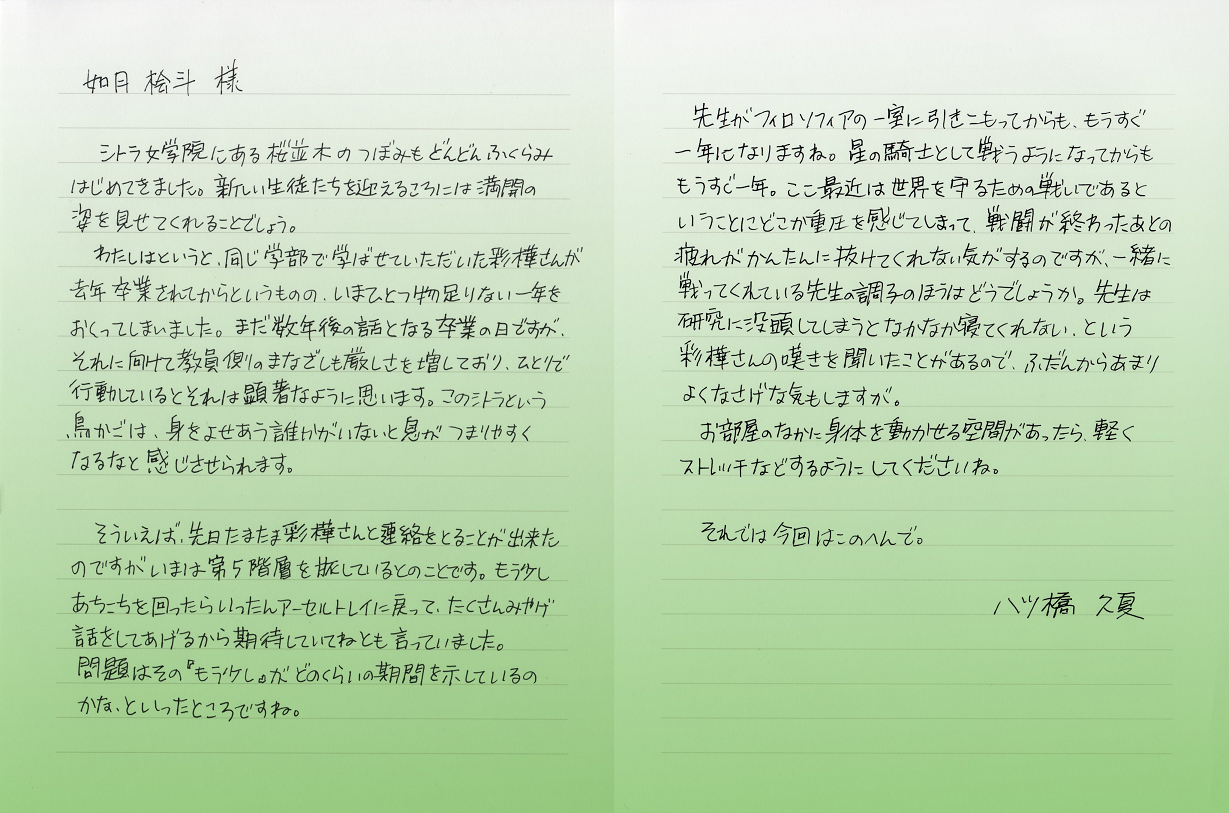 如月 桧斗 様
シトラ女学院にある桜並木のつぼみもどんどんふくらみ
はじめてきました。新しい生徒たちを迎えるころには満開の
姿を見せてくれることでしょう。
わたしはというと、同じ学部で学ばせていただいた彩樺さんが
去年卒業されてからというものの、いまひとつ物足りない一年を
おくってしまいました。まだ数年後の話となる卒業の日ですが、
それに向けて教員側のまなざしも厳しさを増しており、ひとりで
行動しているとそれは顕著なように思います。このシトラという
鳥かごは、身をよせあう誰かがいないと息がつまりやすく
なるなと感じさせられます。
そういえば、先日たまたま彩樺さんと連絡をとることが出来た
のですがいまは第5階層を旅しているとのことです。もう少し
あちこちを回ったらいったんアーセルトレイに戻って、たくさんみやげ
話をしてあげるから期待していてねとも言っていました。
問題はその『もう少し』がどのくらいの期間を示しているの
かな、といったところですね。
先生がフィロソフィアの一室に引きこもってからも、もうすぐ
一年になりますね。星の騎士として戦うようになってからも
もうすぐ一年。ここ最近は世界を守るための戦いであると
いうことにどこか重圧を感じてしまって、戦闘が終わったあとの
疲れがかんたんに抜けてくれない気がするのですが、一緒に
戦ってくれている先生の調子のほうはどうでしょうか。先生は
研究に没頭してしまうとなかなか寝てくれない、という
彩樺さんの嘆きを聞いたことがあるので、ふだんからあまり
よくなさげな気もしますが。
お部屋のなかに身体を動かせる空間があったら、軽く
ストレッチなどするようにしてくださいね。
それでは今回はこのへんで。
八ツ橋 久夏